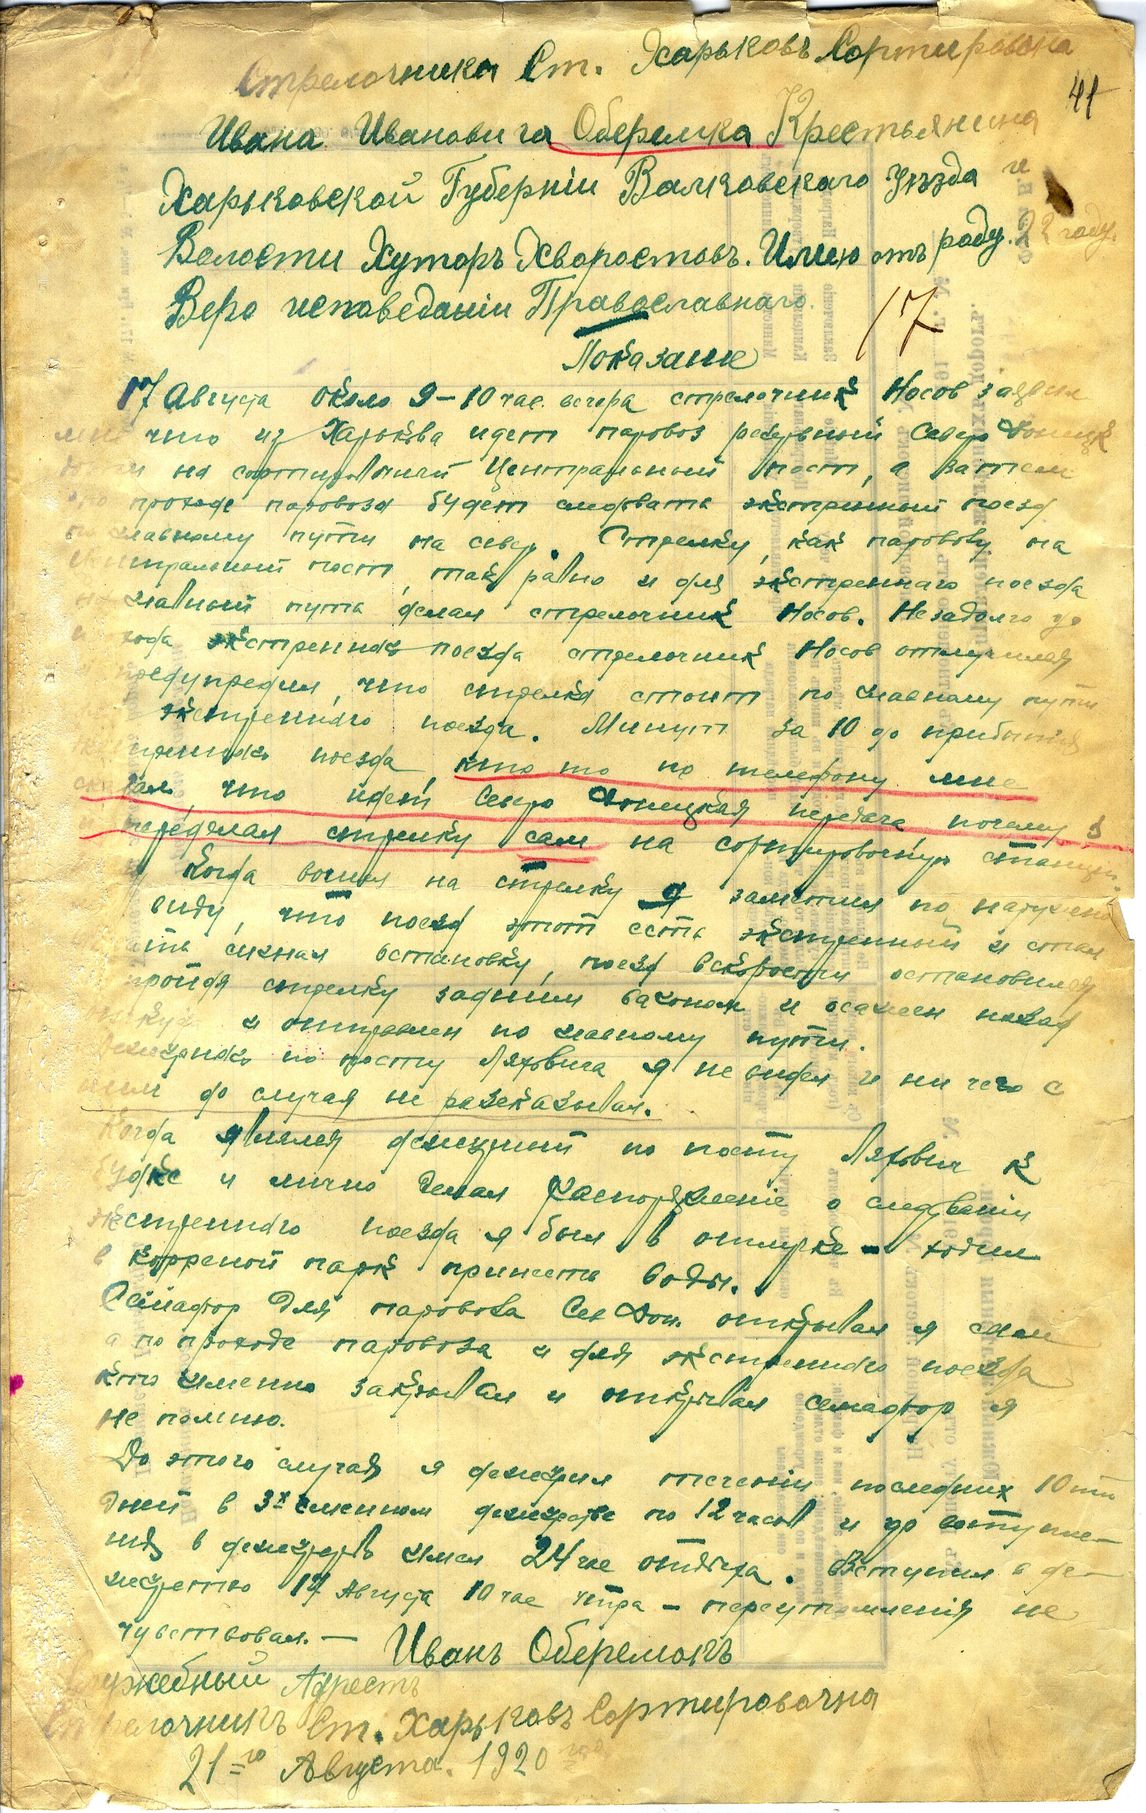 Стрелочника Ст. Харьковъ Сортировочна
41
Ивана Ивановича Оберемка Крестьянина
Харьковской Губерніи Валковскаго уезда
Волости Хуторъ Хворостовъ. Имею отъ роду 22 году.
Веро исповеданіи Православнаго
17
Показание
17 Августа около 9–10 час. вечера стрелочник Носов заявил
мне что из Харькова идет паровоз резервный Северо Донецк
на сортировочный Центральный пост, а затем
по проходе паровоза будет следовать экстренный поезд
по главному пути на север. Стрелку, как паровозу на
Центральный пост, так равно и для экстреннаго поезда
на главный путь делал стрелочник Носов. Незадолго до
прохода экстреннаго поезда стрелочник Носов отлучился
предупредил, что стрелка стоит по главному пути
экстреннаго поезда. Минут за 10 до прибытия
экстреннаго поезда, кто то по телефону мне
сказал, что идет Северо Донецкая передача, почему я
переделал стрелку сам на сортировочную станцию.
Когда вышел на стрелку я заметил по наружно
виду, что поезд этот есть экстренный и стал
дать сигнал остановку, поезд вскорости остановился
пройдя стрелку задним вагоном и осажен назад
и отправлен по главному пути.
Дежурнаго по посту Ляховича я не видел и ни чего с
ним до случая не разсказывал.
Когда являлся дежурный по посту Ляхович к
будке и лично делал распоряжение о следовании
экстреннаго поезда я был в отлучке – ходил
в коренной парк принесть воды.
Семафор для паровоза Сев Дон. открывал я сам
а по проходе паровоза и для экстреннаго поезда
кто именно закрывал и открывал семафор я
не помню.
До этого случая я дежурил течении последних 10 ти
дней в 3х сменном дежурстве по 12 часов и до вступле-
ния в дежурство имел 24 час отдыха. Вступил в де-
журство 17 Августа 10 час утра – переутомления не
чувствовал. —
Иванъ Оберемокъ
Служебный Адресъ
Стрелочникъ Ст. Харьковъ Сортировочна
21=го Августа. 1920 года